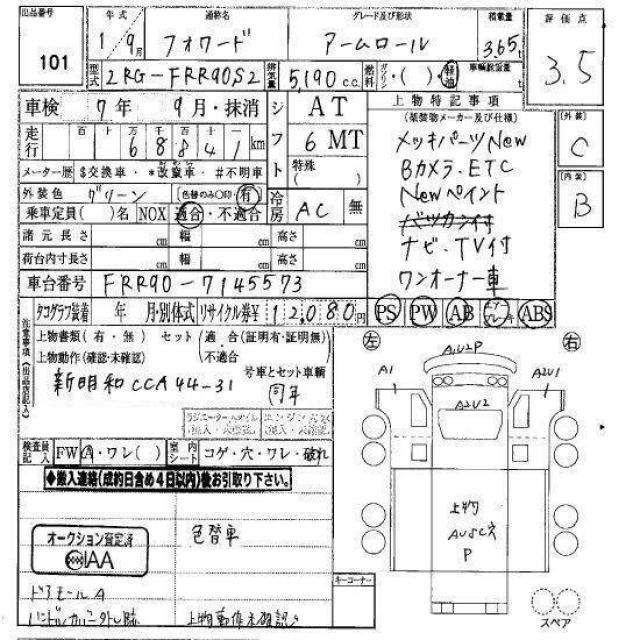 出品番号 年式 通称名 グレード及び形状 積載量 評価点
101 1/9月 フォワード アームロール 3.65t 3.5
型式 2RG-FRR90S2 排気量 5,190c.c. 燃料 ガソリン・( )・軽油 車輌総重量 t
車検 7年 9月・抹消 シフト AT 上物特記事項
(架装物メーカー及び仕様)
走行 百 十 万 千 百 十 一
68841km 6 MT メッキパーツNew
メーター歴 $交換車・*改竄車・#不明車 特殊( ) Bカメラ.ETC
外装色 グリーン (色替のみ○印・有) 冷房 AC 無 Newペイント
乗車定員( )名 NOX 適合・不適合
諸元長さ cm 幅 cm 高さ cm ナビ.TV付
荷台内寸長さ cm 幅 cm 高さ cm ワンオーナー車
車台番号 FRR90-7145573
タコグラフ装着 年 月・別体式 リサイクル券¥ 12,080円 PS PW AB ABS
外装 C
内装 B
注意事項(出品店記入)
上物書類(有・無) セット(適合(証明有・証明無)
上物動作(確認・未確認) 不適合
号車とセット車輌
新明和CCA44-31 同年
検査員記入 FW A・ワレ( ) 室内シート コゲ・穴・ワレ・破れ
◆搬入連絡(成約日含め4日以内)後お引取り下さい。
オークション査定済
IAA
色替車
ドアモールA
上物動作未確認
キーコーナー
左 右
AU2P
A1
A2U1
A2U2
上物
P
スペア